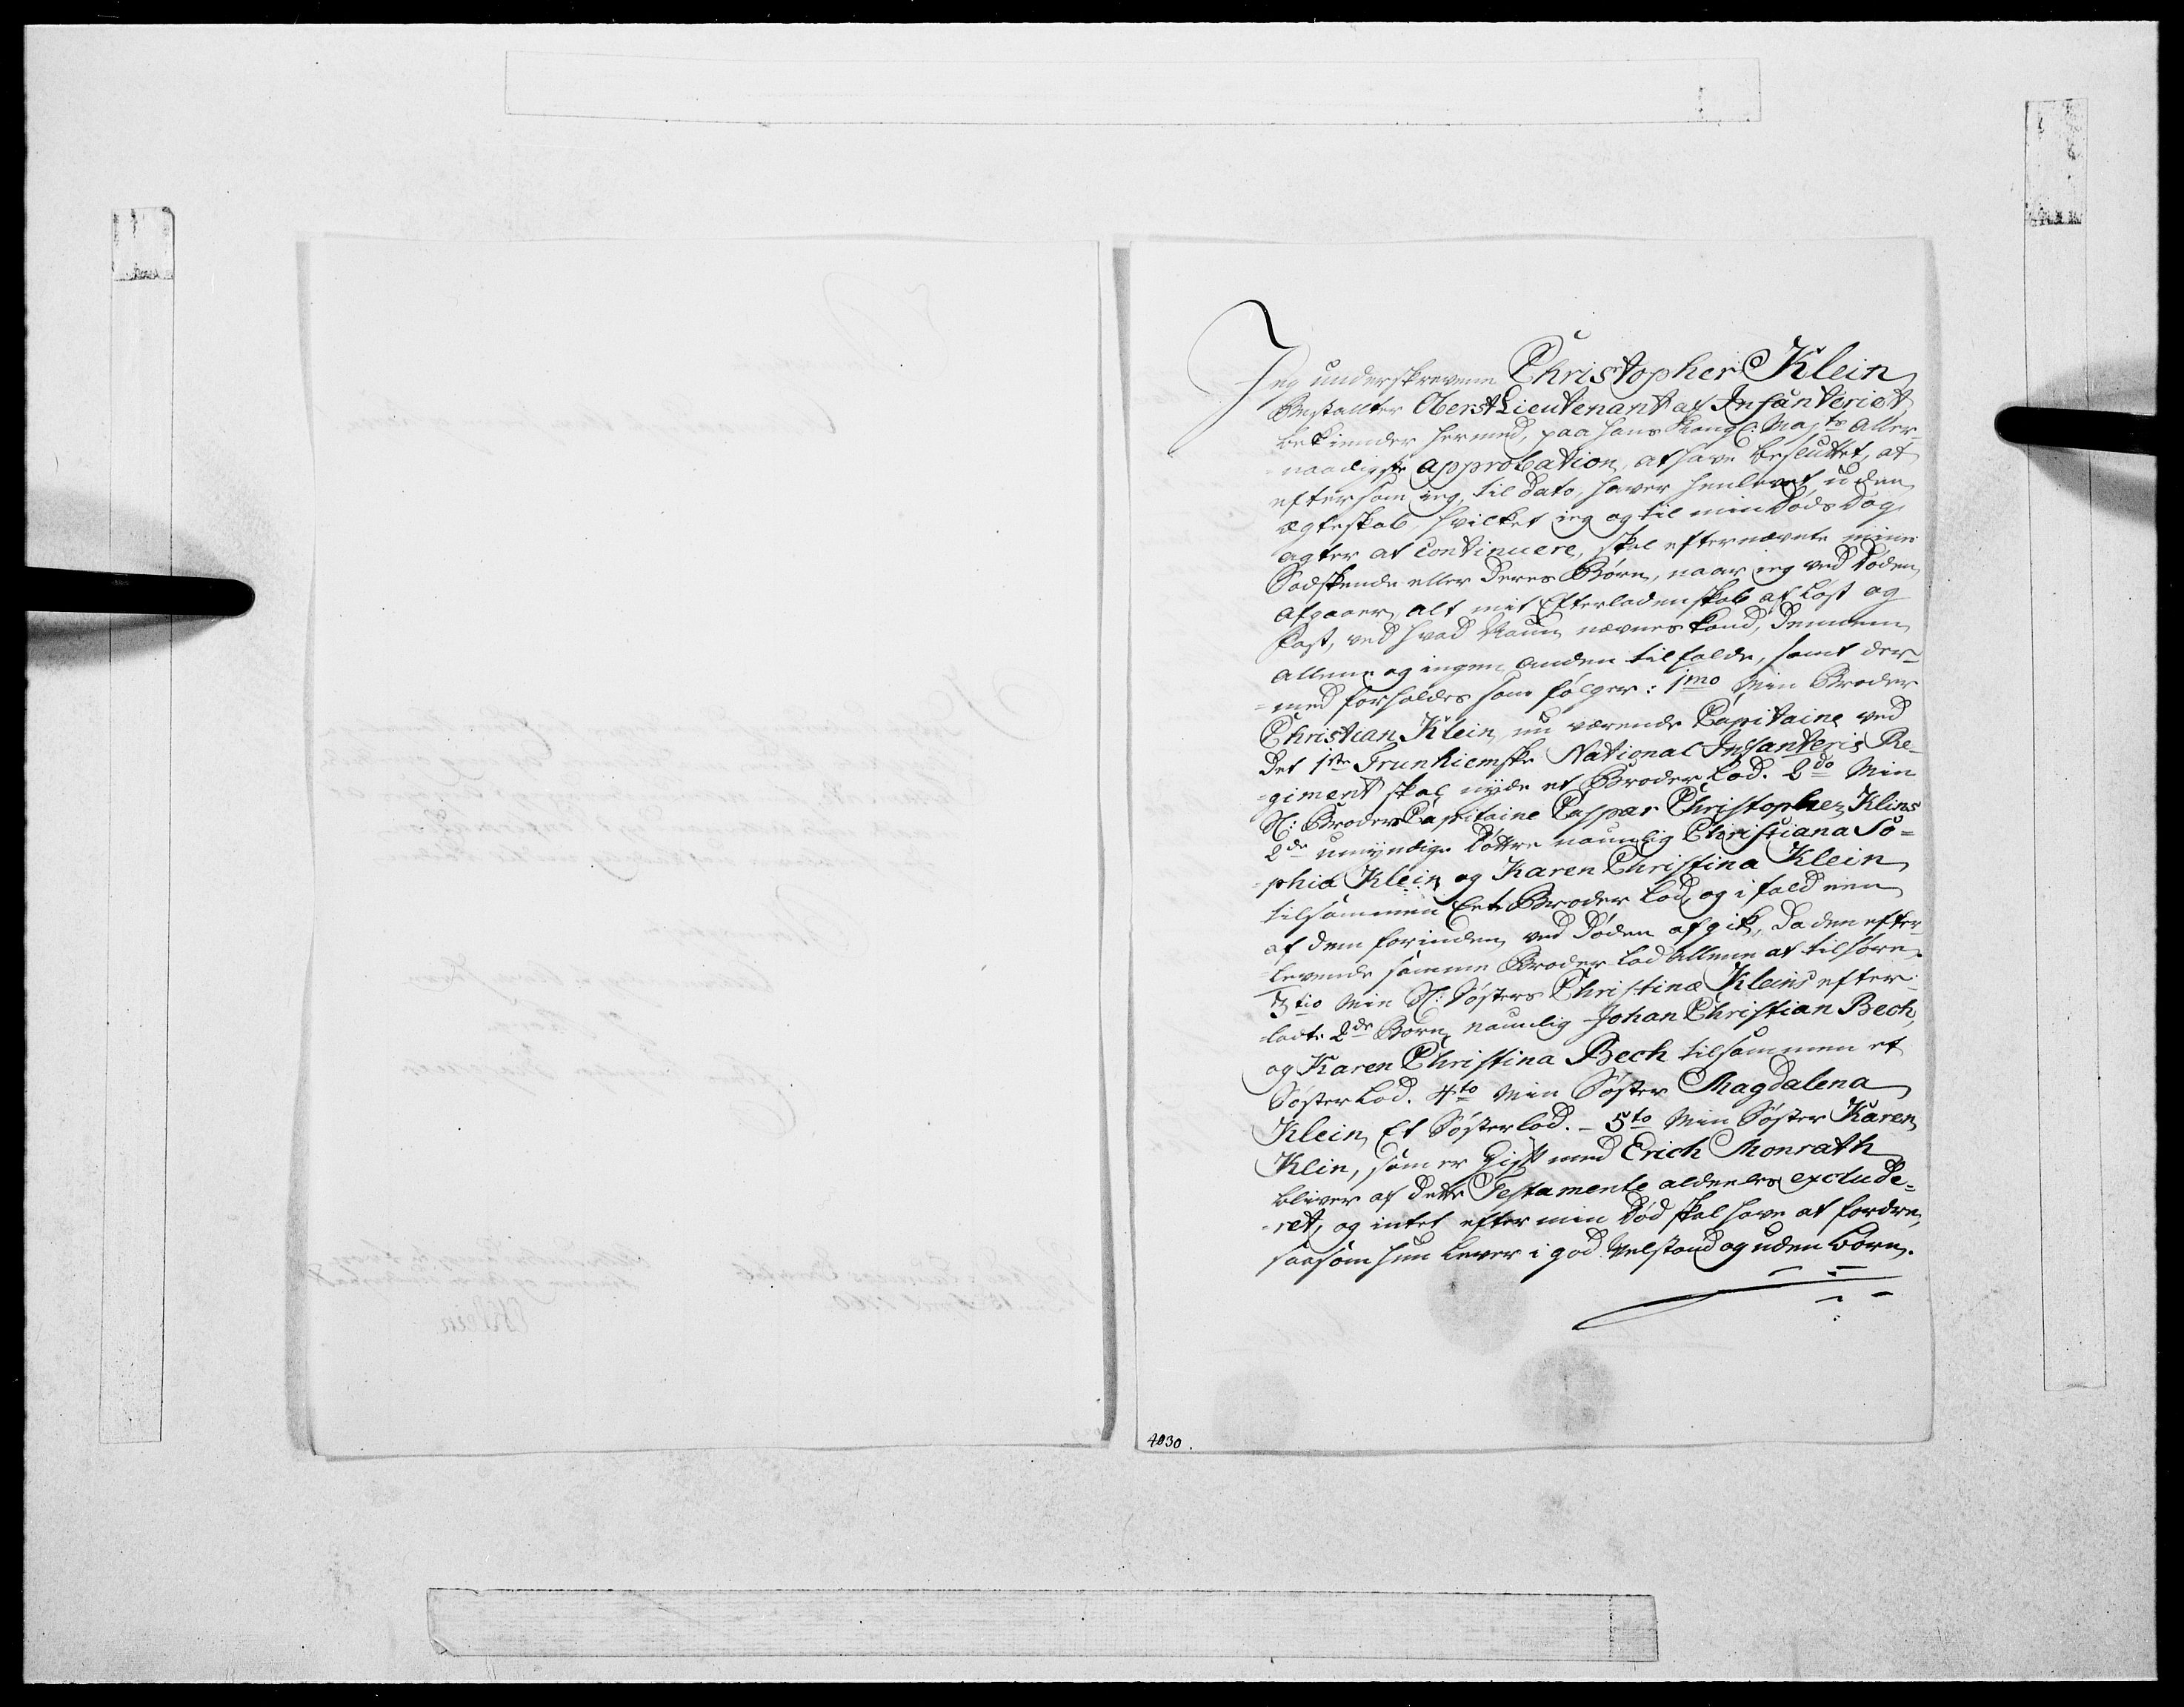 Jeg underskrevene Christopher Klein
Bestalter Oberst Lieutenant af Infanteriet,
bekiender hermed, paa Hans Kongl: Majts Aller-
-naadigste approbation, at have besluttet, at
eftersom jeg, til dato, haver henlevet uden
ægteskab, hvilket jeg og til min Døds Dag
agter at Continuere, skal efternævnte mine
Sødskende eller deres Børn, naar jeg ved Døden
afgaaer, alt mit Efterladenskab af Løst og
Fast, ved hvad Navn nævnes kand, dennem
allene og ingen anden tilfalde, samt der-
-med forholdes som følger: 1mo Min Broder
Christian Klein, nu værende Capitaine ved
det 1ste Trunhiemske National Infanterie Re-
-giment skal nyde et Broder Lod. 2do Min
Sl: Broders Capitaine Caspar Christopher Kleins
2de umyndige Døttre navnlig Christiana So=
-phia Klein og Karen Christina Klein
tilsammen Eet Broder Lod, og i fald een
af dem forinden ved Døden afgik, da den efter-
-levende samme Broder Lod allene at tilhøre.
3tio Min Sl: Søsters Christinæ Kleins efter-
-ladte 2de Børn, navnlig Johan Christian Bech,
og Karen Christina Bech tilsammen et
Søster Lod. 4to Min Søster Magdalena
Klein, Et Søster Lod. - 5to Min Søster Karen
Klein, som er Gift med Erich Monrath
bliver af dette Testamente aldeeles exclude=
-ret, og intet efter min Død skal have at fordre,
saasom hun lever i god Velstand og uden Børn.
4030.